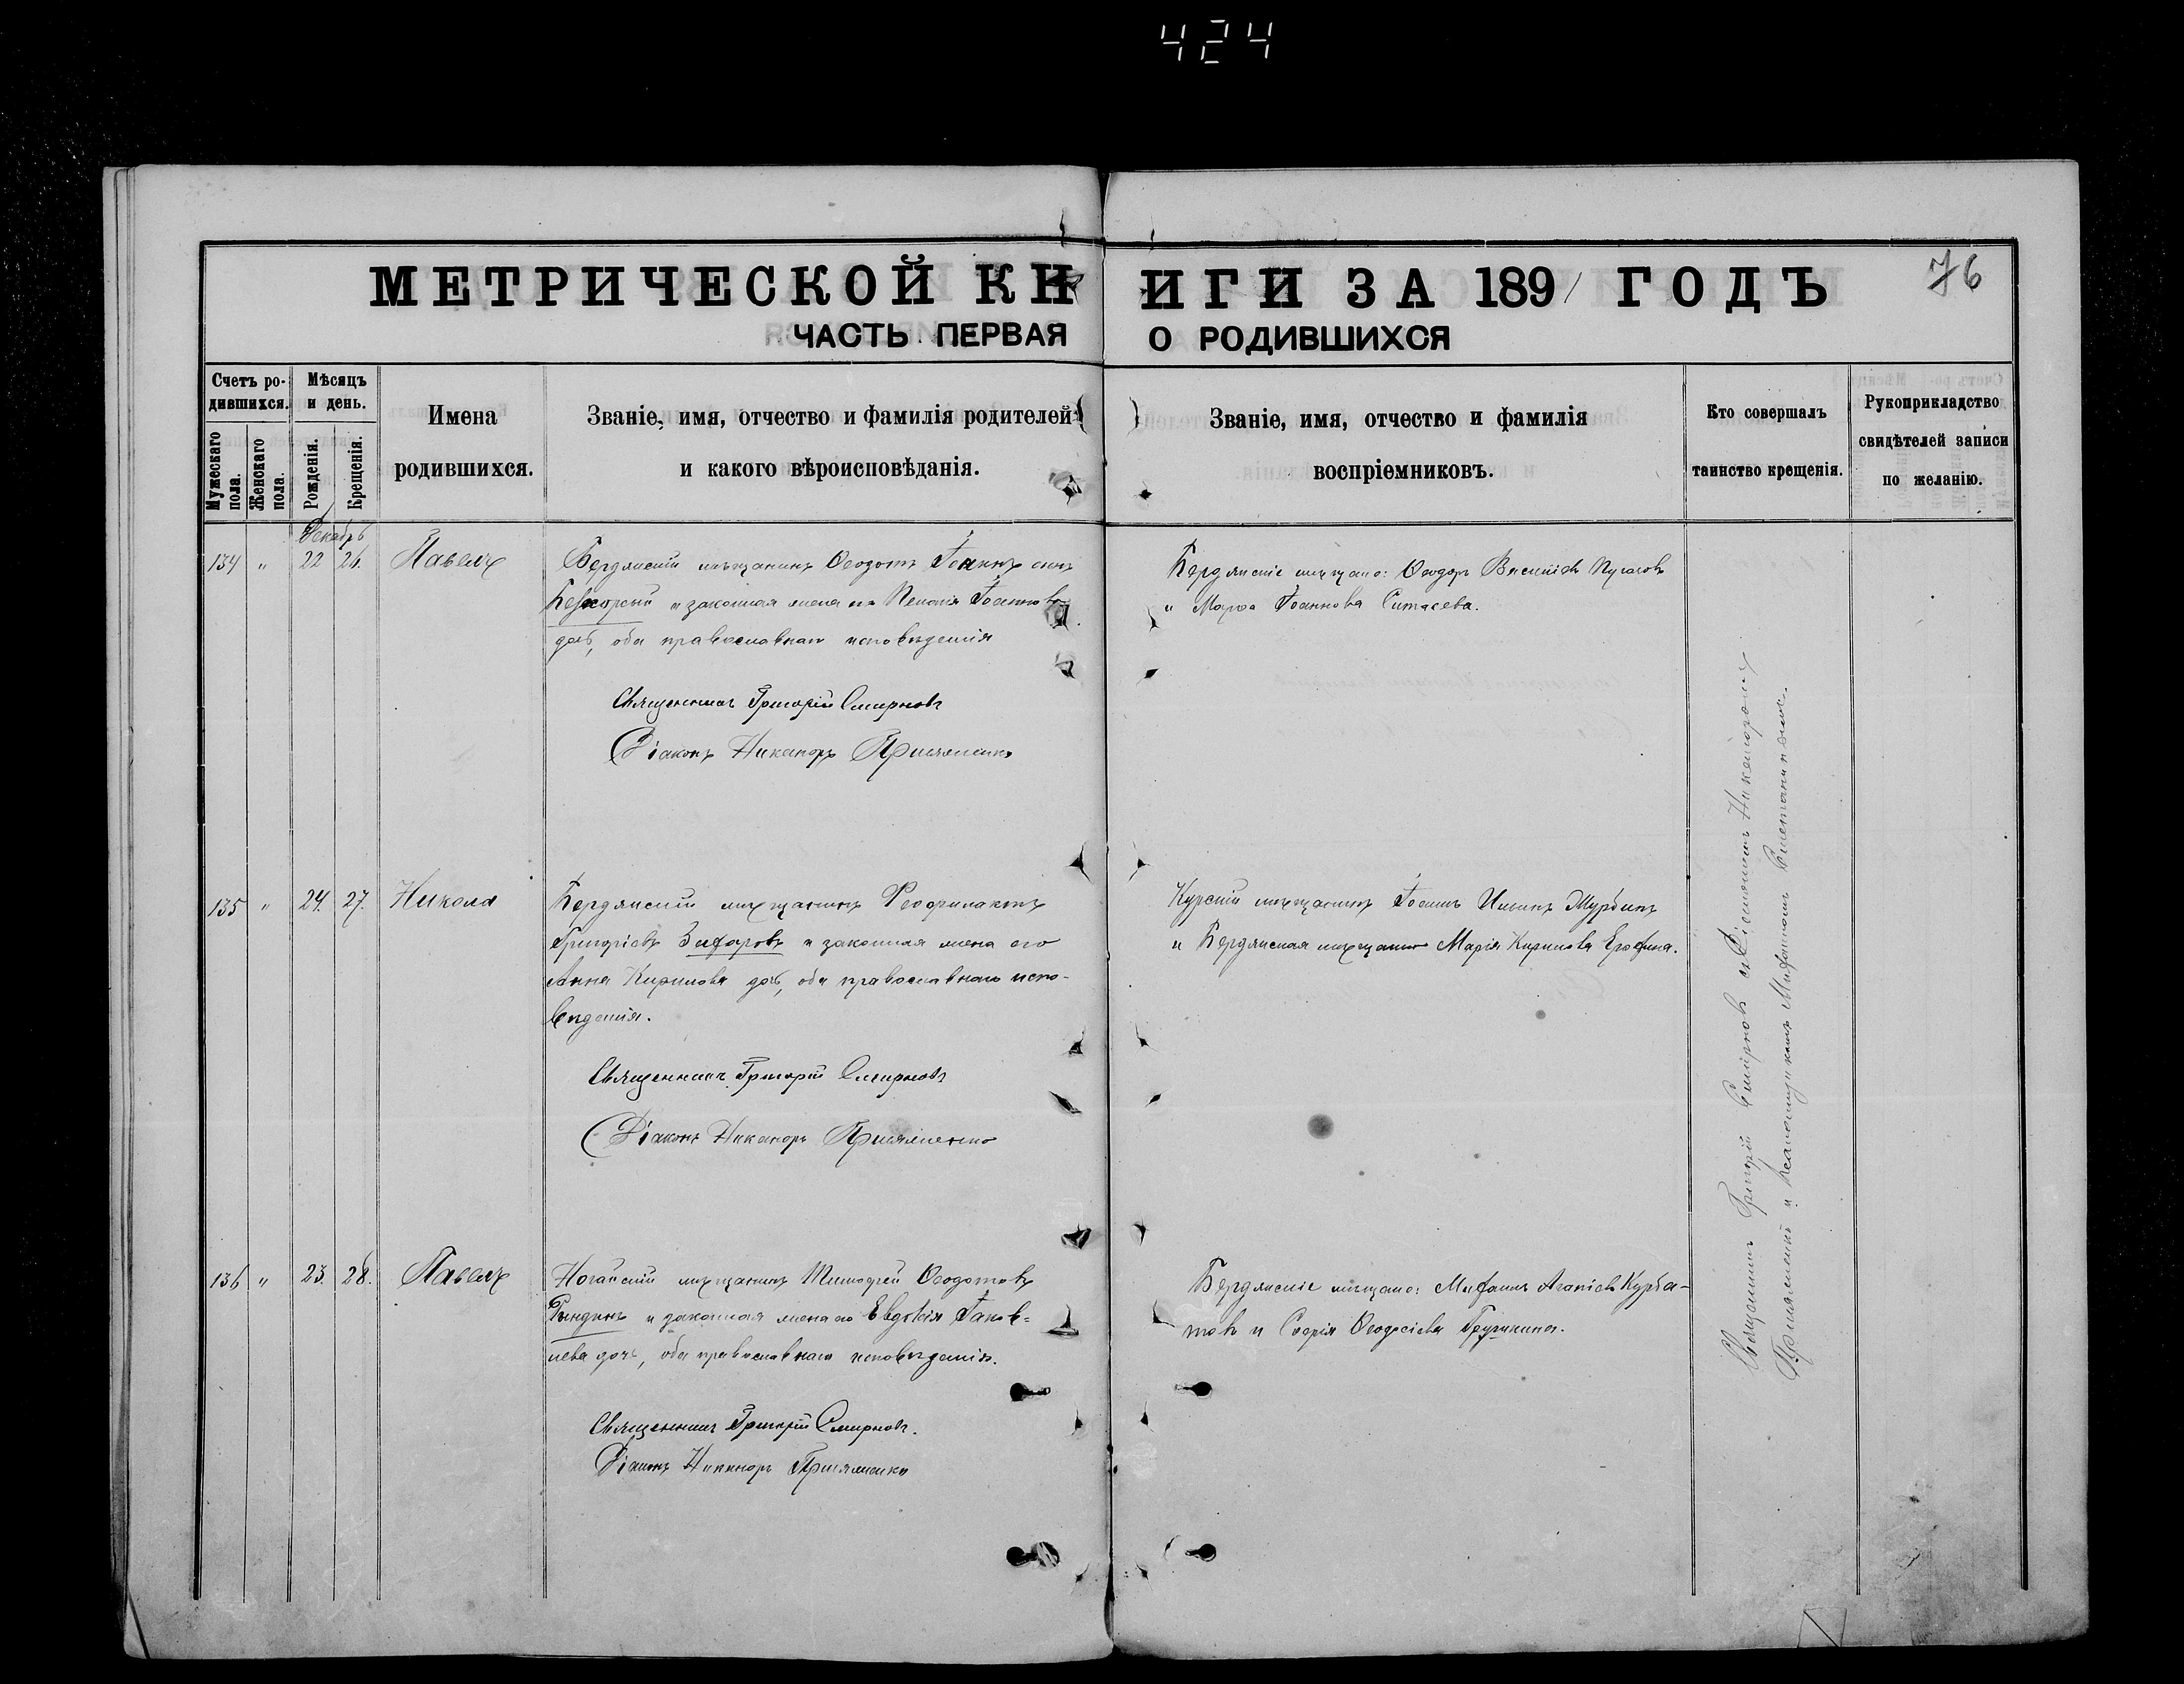 424
МЕТРИЧЕСКОЙ КНИГИ ЗА 1891 ГОДЪ
76
ЧАСТЬ ПЕРВАЯ О РОДИВШИХСЯ
Счетъ родившихся.
Мужескаго пола.
Женскаго пола.
Мѣсяцъ и день.
Рожденія.
Крещенія.
Имена родившихся.
Званіе, имя, отчество и фамилія родителей
и какого вѣроисповѣданія.
Званіе, имя, отчество и фамилія
воспріемниковъ.
Кто совершалъ
таинство крещенія.
Рукоприкладство
свидѣтелей записи
по желанію.
Декабрь
134 " 22 26. Павелъ
Бердянскій мѣщанинъ Ѳеодотъ Іоаннъ сынъ
и законная жена его Пелагія Іоаннова
дочь, оба православнаго исповѣданія
Священникъ Григорій Смирновъ
Діаконъ Никаноръ Присяженко
Бердянскіе мѣщане: Ѳеодоръ Василіевъ Пугачовъ
и Марѳа Іоаннова
135 " 24. 27. Никола
Бердянскій мѣщанинъ Феофилактъ
Григоріевъ Захаровъ и законная жена его
Анна Кирилова дочь, оба православнаго испо-
вѣданія.
Священникъ Григорій Смирновъ
Діаконъ Никаноръ Присяженко
Курскій мѣщанинъ Іоаннъ Ильинъ Журбинъ
и Бердянская мѣщанка Марія Кирилова Ерохина.
136 " 23. 28. Павелъ
Ногайскій мѣщанинъ Тимофей Ѳеодотовъ
Рындинъ и законная жена его Евдокія Іаков-
лева дочь, оба православнаго исповѣданія.
Священникъ Григорій Смирновъ.
Діаконъ Никаноръ Присяженко
Бердянскіе мѣщане: Агапіевъ Курба-
товъ и Софія Ѳеодосіева
Священникъ Григорій Смирновъ съ Діакономъ Никаноромъ
Присяженко и Псаломщикомъ